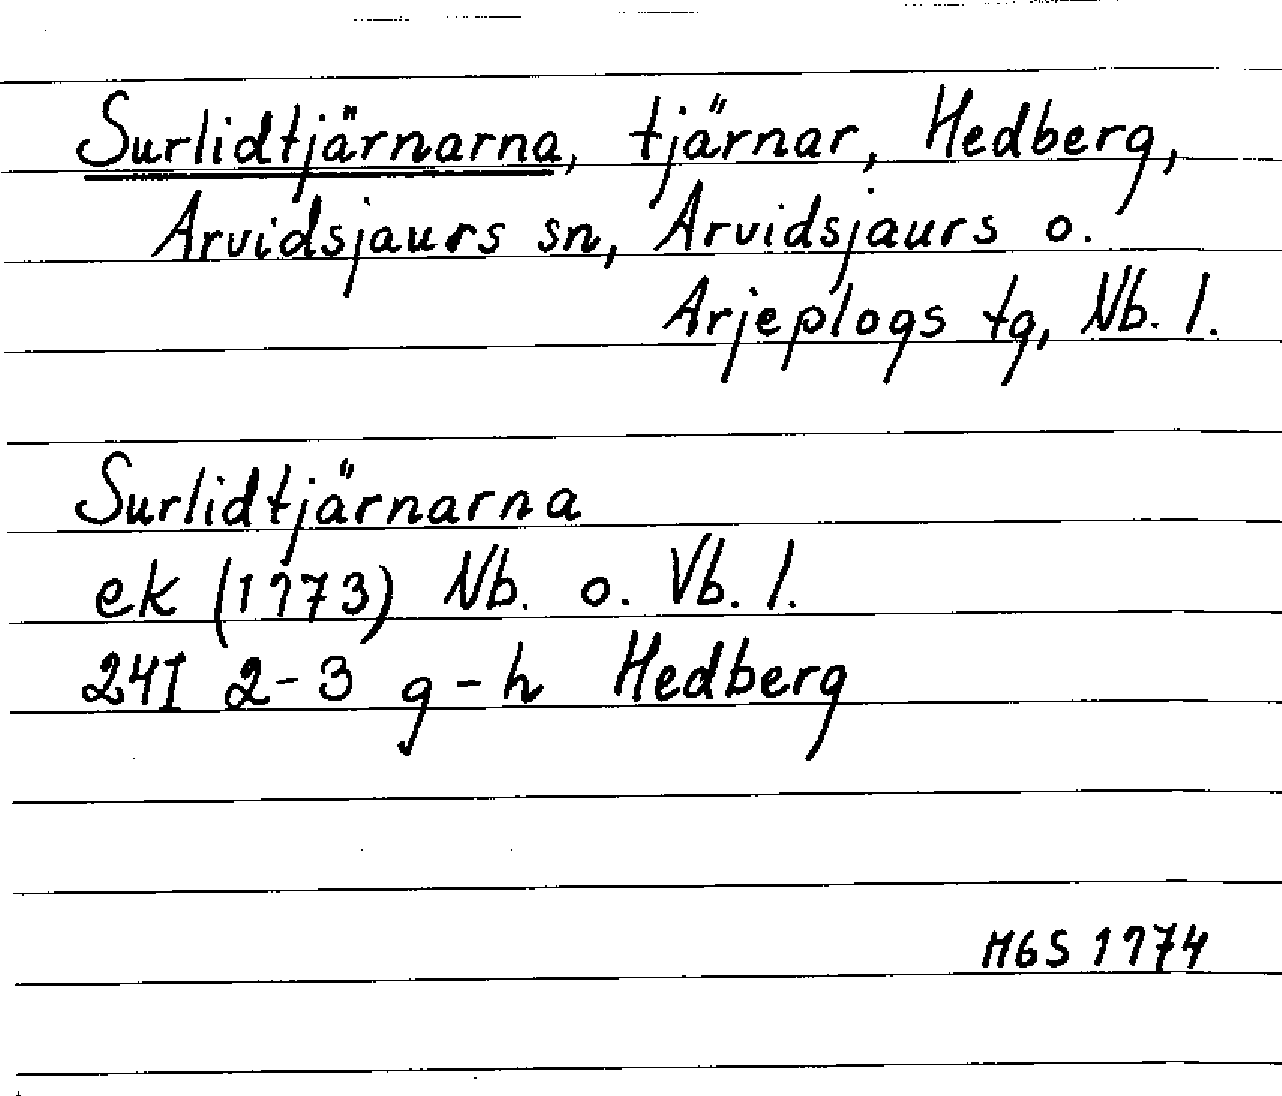 Surlidtjärnarna, tjärnar, Hedberg,
Arvidsjaurs sn, Arvidsjaurs o.
Arjeplogs tg, Nb. l.
Surlidtjärnarna
ek (1973) Nb. o. Vb. l.
24I 2-3 g-h Hedberg
MGS 1974